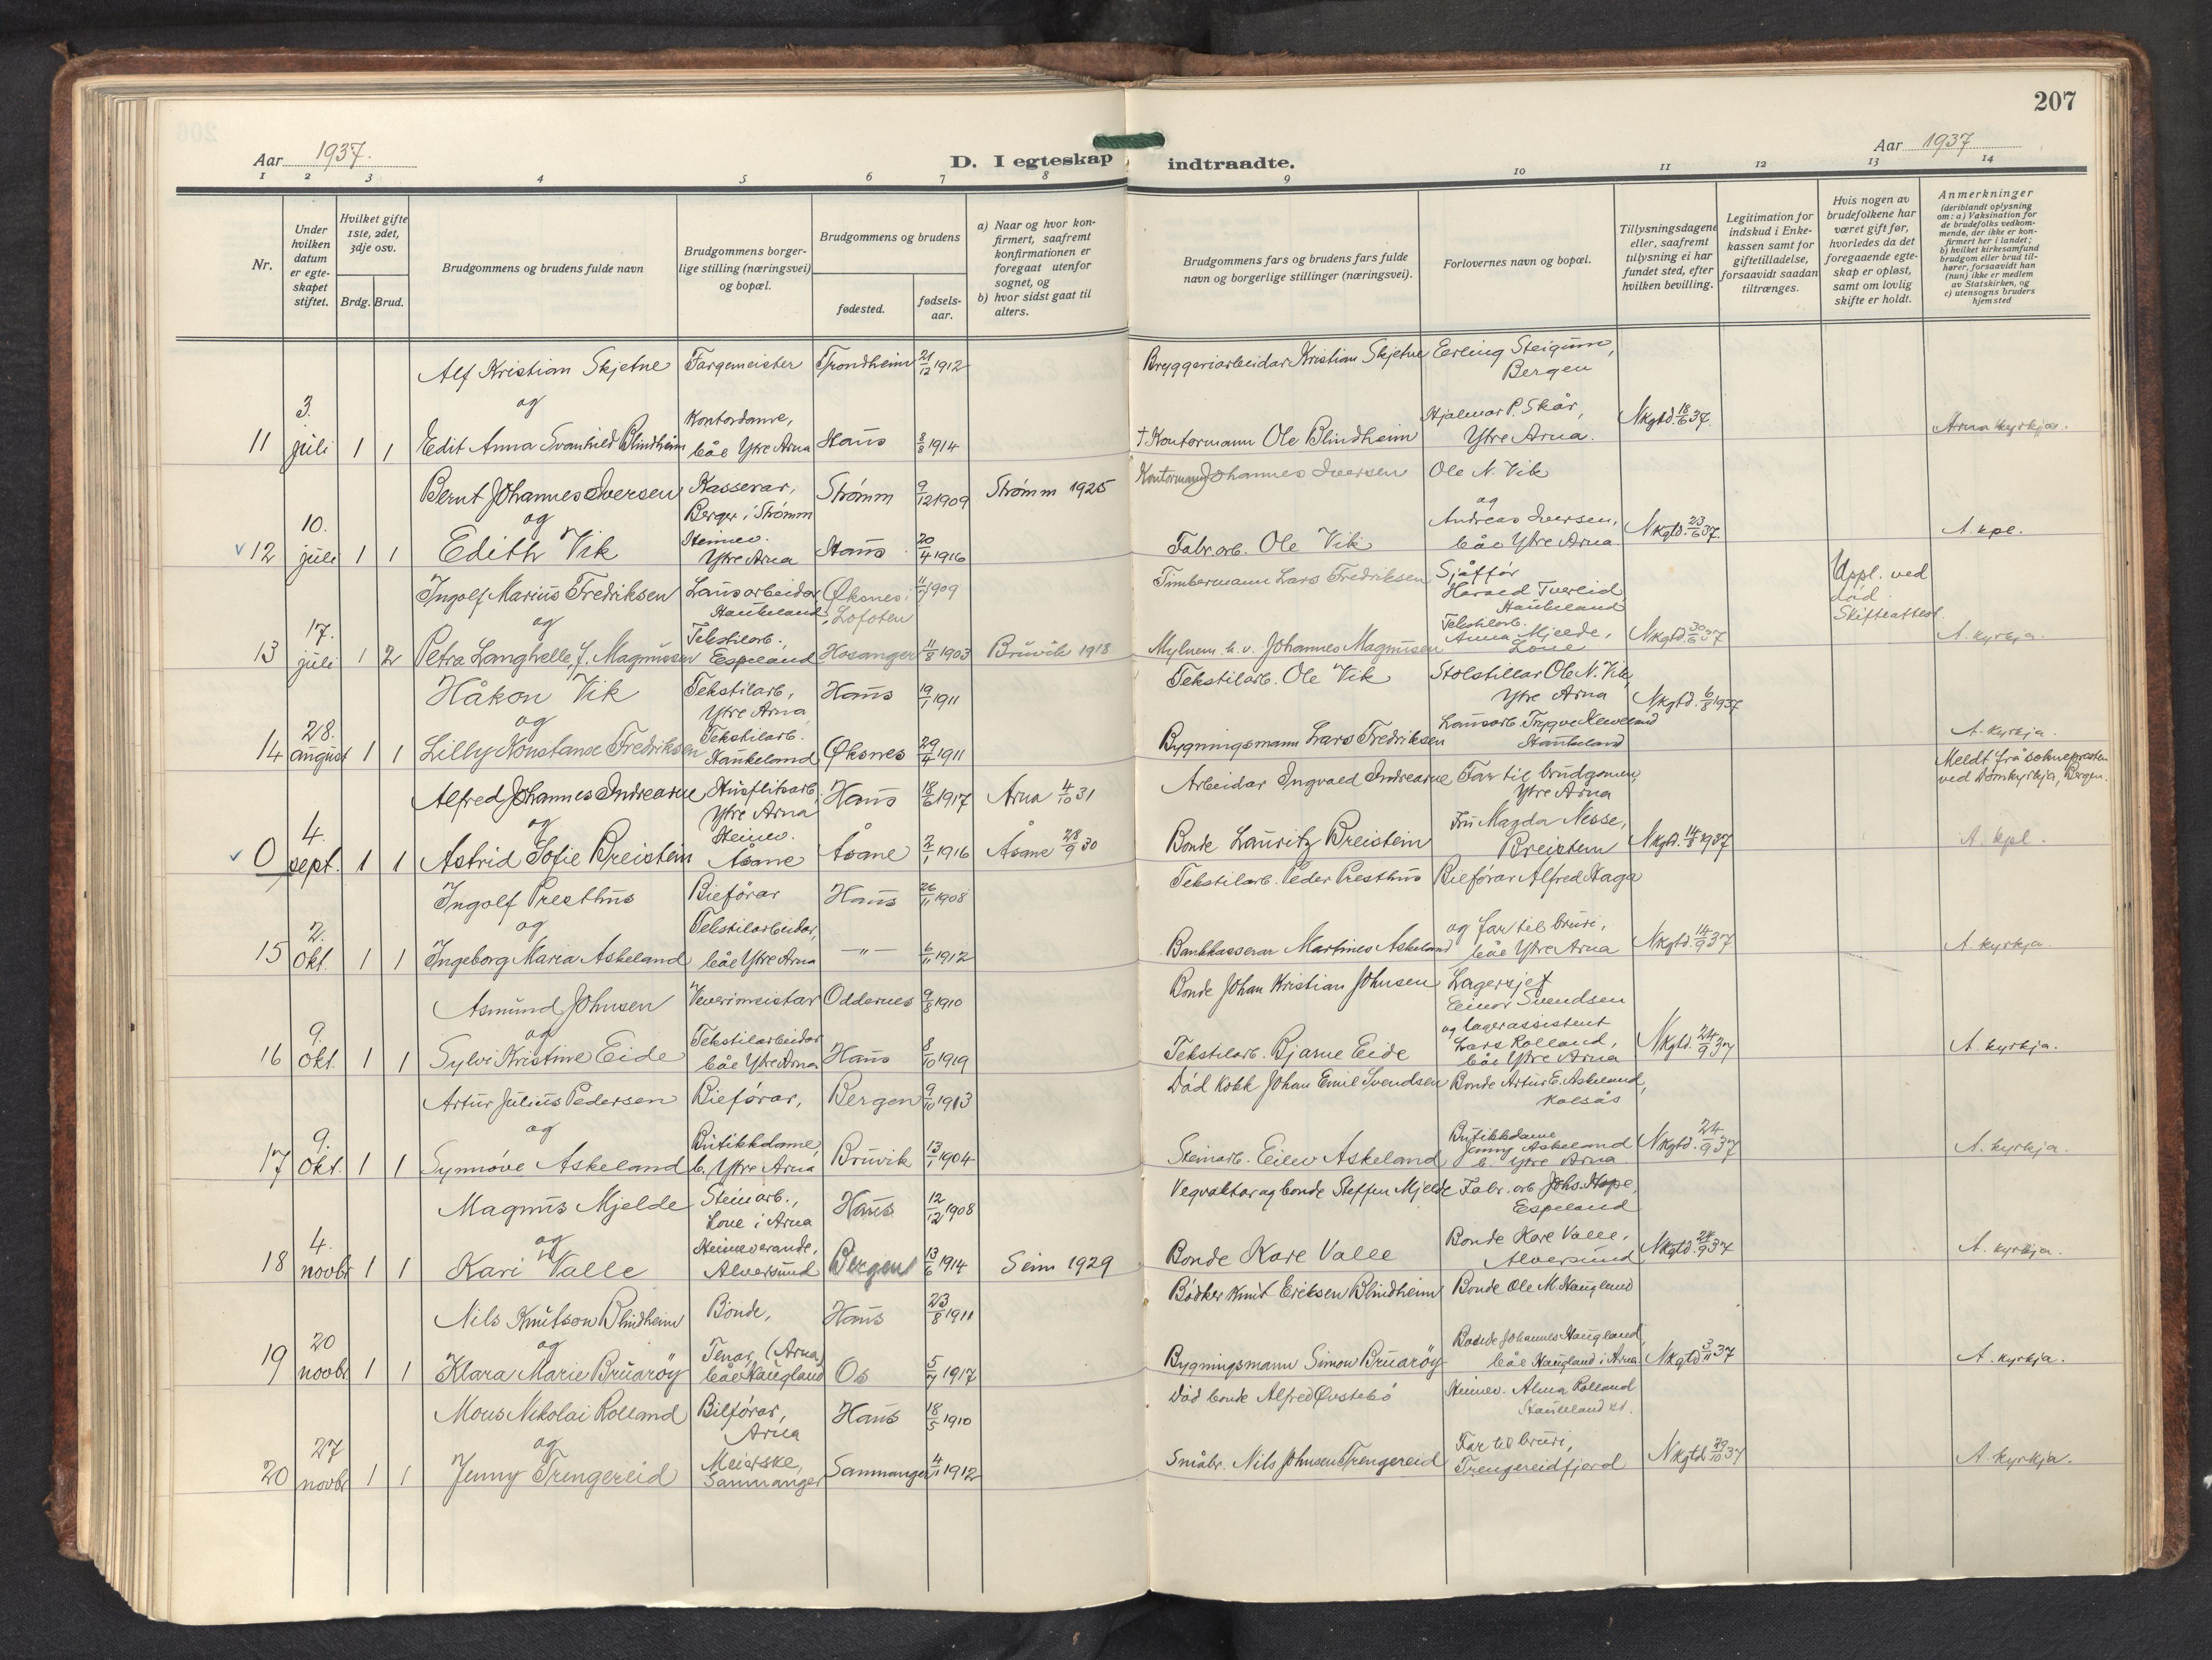 207
Aar 1937.
D. I egteskap indtraadte.
Aar 1937
1 2 3 4 5 6 7 8 9 10 11 12 13 14
Nr.
Under hvilken datum er egteskapet stiftet.
Hvilket gifte 1ste, 2det, 3dje osv.
Brdg. Brud.
Brudgommens og brudens fulde navn
Brudgommens borgerlige stilling (næringsvei) og bopæl.
Brudgommens og brudens
fødested.
fødselsaar.
a) Naar og hvor konfirmert, saafremt konfirmationen er foregaat utenfor sognet, og
b) hvor sidst gaat til alters.
Brudgommens fars og brudens fars fulde navn og borgerlige stillinger (næringsvei).
Forlovernes navn og bopæl.
Tillysningsdagene eller, saafremt tillysning ei har fundet sted, efter hvilken bevilling.
Legitimation for indskud i Enkekassen samt for giftetilladelse, forsaavidt saadan tiltrænges.
Hvis nogen av brudefolkene har været gift før, hvorledes da det foregaaende egteskap er opløst, samt om lovlig skifte er holdt.
Anmerkninger
(deriblandt oplysning om: a) Vaksination for de brudefolks vedkommende, der ikke er konfirmert her i landet;
b) hvilket kirkesamfund brudgom eller brud tilhører, forsaavidt han (hun) ikke er medlem av Statskirken, og
c) utensogns bruders hjemsted
Alf Kristian Skjetne Fargemeister Trondheim 21/12 1912 Bryggeriarbeidar Kristian Skjetne Erling Steigum, Bergen
og
11 3. juli 1 1 Edit Anna Svanhild Blindheim Kontordame, båe Ytre Arna Haus 8/8 1914 † Kontormann Ole Blindheim Hjalmar P. Skår, Ytre Arna. Nkgtd. 18/6 37. Arna kyrkja.
Bernt Johannes Iversen Kasserar, Berger i Strømm Strømm 9/12 1909 Strømm 1925 Kontormann Johannes Iversen Ole N. Vik
og
12 10. juli 1 1 Edith Vik Heimev. Ytre Arna Haus 20/4 1916 Fabr.arb. Ole Vik og Andreas Iversen, båe Ytre Arna. Nkgtd. 23/6 37. A. kpl.
Ingolf Marius Fredriksen Lausarbeidar, Haukeland Øksnes, Lofoten 11/7 1909 Timbermann Lars Fredriksen Sjåffør Harald Tvereid, Haukeland Uppl. ved død. Skifteattest.
og
13 17. juli 1 2 Petra Langhelle, f. Magnussen Tekstilarb., Espeland Hosanger 11/8 1903 Bruvik 1918 Mylnem. h.v. Johannes Magnusen Tekstilarb. Anna Mjelde, Lone Nkgtd. 30/6 37 A. kyrkja.
Håkon Vik Tekstilarb, Ytre Arna Haus 19/1 1911 Tekstilarb. Ole Vik Stolstillar Ole N. Vik, Ytre Arna Nkgtd. 6/8 1937
og
14 28. august 1 1 Lilly Konstanse Fredriksen Tekstilarb. Haukeland Øksnes 29/4 1911 Bygningsmann Lars Fredriksen Lausarb. Trygve Haukeland A. kyrkja.
Alfred Johannes Indrearne Husflitsarb, Ytre Arna Haus 18/6 1917 Arna 4/10 31 Arbeidar Ingvald Indrearne Far til brudgomen, Ytre Arna Meldt frå soknepresten ved Domkyrkja, Bergen.
og
0 4. sept. 1 1 Astrid Sofie Breistein Heimev. Åsane Åsane 2/1 1916 Åsane 28/9 30 Bonde Lauritz Breistein Fru Magda Nesse, Breistein Nkgtd. 14/8 1937 A. kpl.
Ingolf Presthus Bilførar Haus 26/11 1908 Tekstilarb. Peder Presthus Bilførar Alfred Haga
og
15 2. okt. 1 1 Ingeborg Maria Askeland Tekstilarbeidar, båe Ytre Arna —"— 6/11 1912 Bankkasserar Martines Askeland og far til bruri, båe Ytre Arna Nkgtd. 14/9 37 A. kyrkja.
Asmund Johnsen Veverimeistar Oddernes 9/8 1910 Bonde Johan Kristian Johnsen Lagersjef Einar Svendsen
og
16 9. okt. 1 1 Sylvi Kristine Eide Tekstilarbeidar båe Ytre Arna Haus 8/10 1919 Tekstilarb. Bjarne Eide og lagerassistent Lars Rolland, båe Ytre Arna Nkgtd. 24/9 37 A. kyrkja.
Artur Julius Pedersen Bilførar, Bergen 9/10 1913 Død Kokk Johan Emil Svendsen Bonde Artur E. Askeland, Kalsås
og
17 9. okt. 1 1 Synnøve Askeland Butikkdame, b. Ytre Arna Bruvik 13/1 1904 Steinarb. Eilev Askeland Butikkdame Jenny Askeland b. Ytre Arna Nkgtd. 24/9 37 A. kyrkja.
Magnus Mjelde Steinarb., Lone i Arna Haus 12/12 1908 Vegvaktar og bonde Steffen Mjelde Fabr. arb Johs. Hope, Espeland
og
18 4. novbr 1 1 Kari Valle Heimeverande, Alversund Bergen 13/6 1914 Seim 1929 Bonde Kare Valle Bonde Kare Valle, Alversund Nkgtd. 24/9 37 A. kyrkja.
Nils Knutson Blindheim Bonde, Haus 23/8 1911 Bødker Knut Eriksen Blindheim Bonde Ole M. Haugland
og
19 20 novbr 1 1 Klara Marie Bruarøy Tenar, (Arna) båe Haugland Os 5/7 1917 Bygningsmann Simon Bruarøy Bonde Johannes Haugland, båe Haugland i Arna Nkgtd 3/11 37 A. kyrkja.
Mons Nikolai Rolland Bilførar, Arna Haus 18/5 1910 Død bonde Alfred Øvstebø Heimev. Alma Rolland Haukeland st.
og
20 27 novbr 1 1 Jenny Trengereid Meierske, Samnanger Samnanger 4/11 1912 Småbr. Nils Johnsen Trengereid Far til bruri, Trengereidfjord Nkgtd 29/10 37 A. kyrkja.